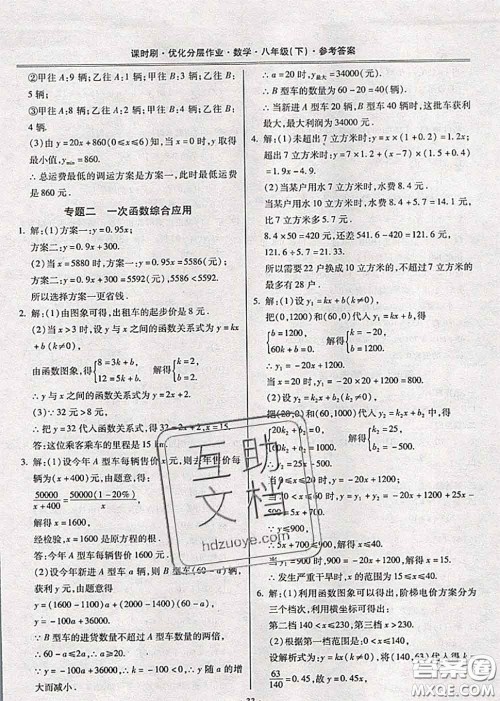 课时刷·优化分层作业·数学·八年级(下)·参考答案
②甲往A:9辆;乙往A:1辆;甲往B:3辆;乙往B:
5辆;
③甲往A:8辆;乙往A:2辆;甲往B:4辆;乙往B:
4辆.
(3)由y=20x+860(0≤x≤6)知,当x=0时,y取得
最小值,ymin=860.
∴总运费最低的调运方案是方案一,此时最低运
费是860元.
专题二 一次函数综合应用
1. 解:(1)方案一:y=0.95x;
方案二:y=0.9x+300.
(2)当x=5880时,方案一:y=0.95x=5586(元);
方案二:y=0.9x+300=5592(元).
所以选择方案一更省钱.
2. 解:(1)由图象可得,出租车的起步价是8元.
(2)当x>3时,设y与x之间的函数关系式为y=kx
+b(k≠0),
由函数图象,得{8=3k+b, 12=5k+b. 解得{k=2, b=2.
∴y与x之间的函数关系式为y=2x+2.
(3)∵32元>8元,
∴把y=32代入函数关系式,得32=2x+2,x=15.
答:这位乘客乘车的里程是15 km.
3. 解:(1)设今年A型车每辆售价x元,则去年售价每
辆为(x+400)元,由题意,得
50000/(x+400)=50000(1-20%)/x,
解得x=1600.
经检验,x=1600是原方程的根.
答:今年A型车每辆售价1600元.
(2)设今年新进A型车a辆,则B型车(60-a)辆,
获利y元,由题意,得
y=(1600-1100)a+(2000-1400)(60-a),
y=-100a+36000.
∵B型车的进货数量不超过A型车数量的两倍,
∴60-a≤2a,∴a≥20.
∵y=-100a+36000,k=-100<0,∴y随a的增
大而减小.
∴a=20时,y最大=34000(元).
∴B型车的数量为60-20=40(辆).
∴当新进A型车20辆,B型车40辆时,这批车获利
最大,最大利润为34000元.
4. 解:(1)未超出7立方米时:y=x×(1+0.2)=1.2x;
超出7立方米时:y=7×1.2+(x-7)×(1.5+0.4)
=1.9x-4.9.
(2)当某户用水7立方米时,水费8.4元.
当某户用水10立方米时,水费8.4+5.7=14.1
元,比7立方米多5.7元.
8.4×50=420元,还差541.6-420=121.6元,
121.6÷5.7=21.33.
所以需要22户换成10立方米的,不超过7立方米的
最多有28户.
5. 解:(1)设y1=k1x+b1(k≠0),
把(0,1200)和(60,0)代入y1=k1x+b1,得
{b=1200, 60k+b=0. 解得{k=-20, b=1200.
∴y1=-20x+1200.
当x=20时,y1=-20×20+1200=800.
(2)设y2=k2x+b2(k≠0),
把(20,0)和(60,1000)代入y2=k2x+b2中,得
{20k2+b2=0, 60k2+b2=1000. 解得{k2=25, b2=-500.
∴y2=25x-500.
当20≤x≤60时,y=y1+y2=-20x+1200+25x-
500=5x+700.
∵y≤900,
∴5x+700≤900,解得x≤40.
当y1=900时,900=-20x+1200,解得x=15.
∴发生严重干旱时x的范围为15≤x≤40.
6. 解:(1)利用函数图象可以得出,阶梯电价方案分为
三个档次,利用横坐标可以得出:
第二档140<x≤230,第三档x>230.
(2)根据第一档范围是:0<x≤140.
设解析式为:y=kx,将(140,63)代入得出:k=
63/140=0.45,
互助文档
hdzuoye.com
答案圈
MXQE.COM